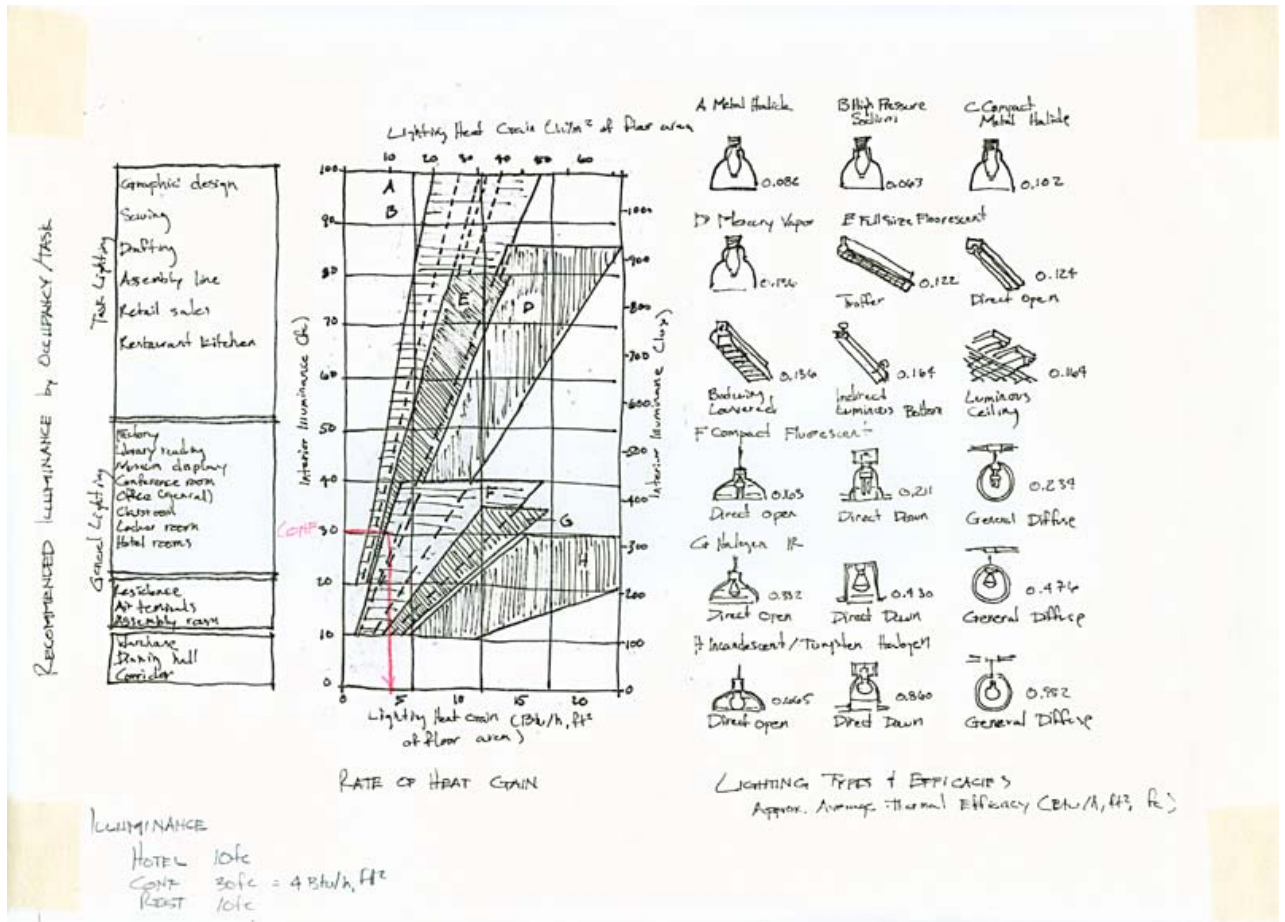 RECOMMENDED ILLUMINANCE by OCCUPANCY/TASK
Task Lighting
Graphic design
Sewing
Drafting
Assembly line
Retail sales
Restaurant kitchen
General Lighting
Factory
Library reading
Museum display
Conference room
Office (general)
Classroom
Locker room
Hotel rooms
Residence
Air terminals
Assembly room
Warehouse
Dining hall
Corridor
Lighting Heat Gain (W/m² of floor area
10 20 30 40 50 60
Interior Illuminance (fc)
100
90
80
70
60
50
40
30
20
10
0
A
B
E
D
F
G
H
CONF
Interior Illuminance (lux)
1000
900
800
700
600
500
400
300
200
100
0
0 5 10 15 20
Lighting Heat Gain (Btu/h, ft²
of floor area)
RATE OF HEAT GAIN
A Metal Halide
0.086
B High Pressure
Sodium
0.063
C Compact
Metal Halide
0.102
D Mercury Vapor
E Full Size Fluorescent
0.122
Troffer
0.124
Direct Open
0.136
Batwing,
Louvered
0.164
Indirect
Luminous Bottom
0.164
Luminous
Ceiling
F Compact Fluorescent
0.163
Direct Open
0.211
Direct Down
0.239
General Diffuse
G Halogen IR
0.332
Direct Open
0.430
Direct Down
0.476
General Diffuse
H Incandescent/Tungsten Halogen
0.665
Direct Open
0.860
Direct Down
0.952
General Diffuse
LIGHTING TYPES & EFFICACIES
Approx. Average Thermal Efficacy (Btu/h, ft², fc)
ILLUMINANCE
HOTEL 10fc
CONF 30fc = 4 Btu/h, ft²
REST 10fc